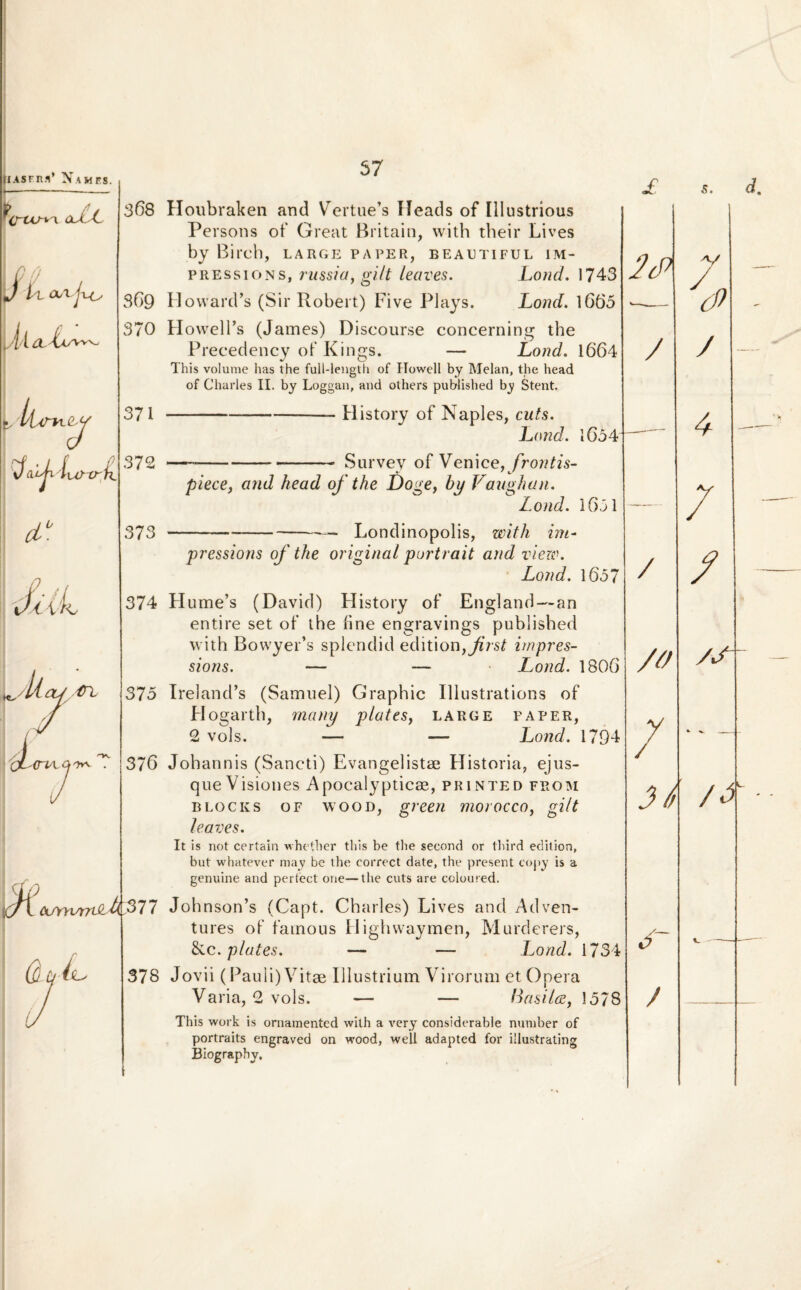 57
HASERS' NAMES.
£ s. d.
368 Houbraken and Vertue's Heads of Illustrious
Persons of Great Britain, with their Lives
by Birch, LARGE PAPER, BEAUTIFUL IM-
PRESSIONS, russia, gilt leaves. Lond. 1743
28 7 —
369 Howard's (Sir Robert) Five Plays. Lond. 1665
— 8 -
370 Howell's (James) Discourse concerning the
Precedency of Kings. — Lond. 1664
/ / —
This volume has the full-length of Howell by Melan, the head
of Charles II. by Loggan, and others published by Stent.
371 ——————— History of Naples, cuts.
Lond. 1654
— 4 —
372 ——————— Survey of Venice, frontis-
piece, and head of the Doge, by Vaughan.
Lond. 1651
— 7 —
373 ——————— Londinopolis, with im-
pressions of the original portrait and view.
Lond. 1657
d°.
/ 9 —
374 Hume's (David) History of England—an
entire set of the fine engravings published
with Bowyer's splendid edition, first impres-
sions. — — Lond. 1806
10 15 —
375 Ireland's (Samuel) Graphic Illustrations of
Hogarth, many plates, LARGE PAPER,
2 vols. — — Lond. 1794
7 - —
376 Johannis (Sancti) Evangelistæ Historia, ejus-
que Visiones Apocalypticæ, PRINTED FROM
BLOCKS OF WOOD, green morocco, gilt
leaves.
It is not certain whether this be the second or third edition,
but whatever may be the correct date, the present copy is a
genuine and perfect one—the cuts are coloured.
377 Johnson's (Capt. Charles) Lives and Adven-
tures of famous Highwaymen, Murderers,
&c. plates. — — Lond. 1734
5 — —
378 Jovii (Pauli) Vitæ Illustrium Virorum et Opera
Varia, 2 vols. — — Basilæ, 1578
/ — —
This work is ornamented with a very considerable number of
portraits engraved on wood, well adapted for illustrating
Biography.